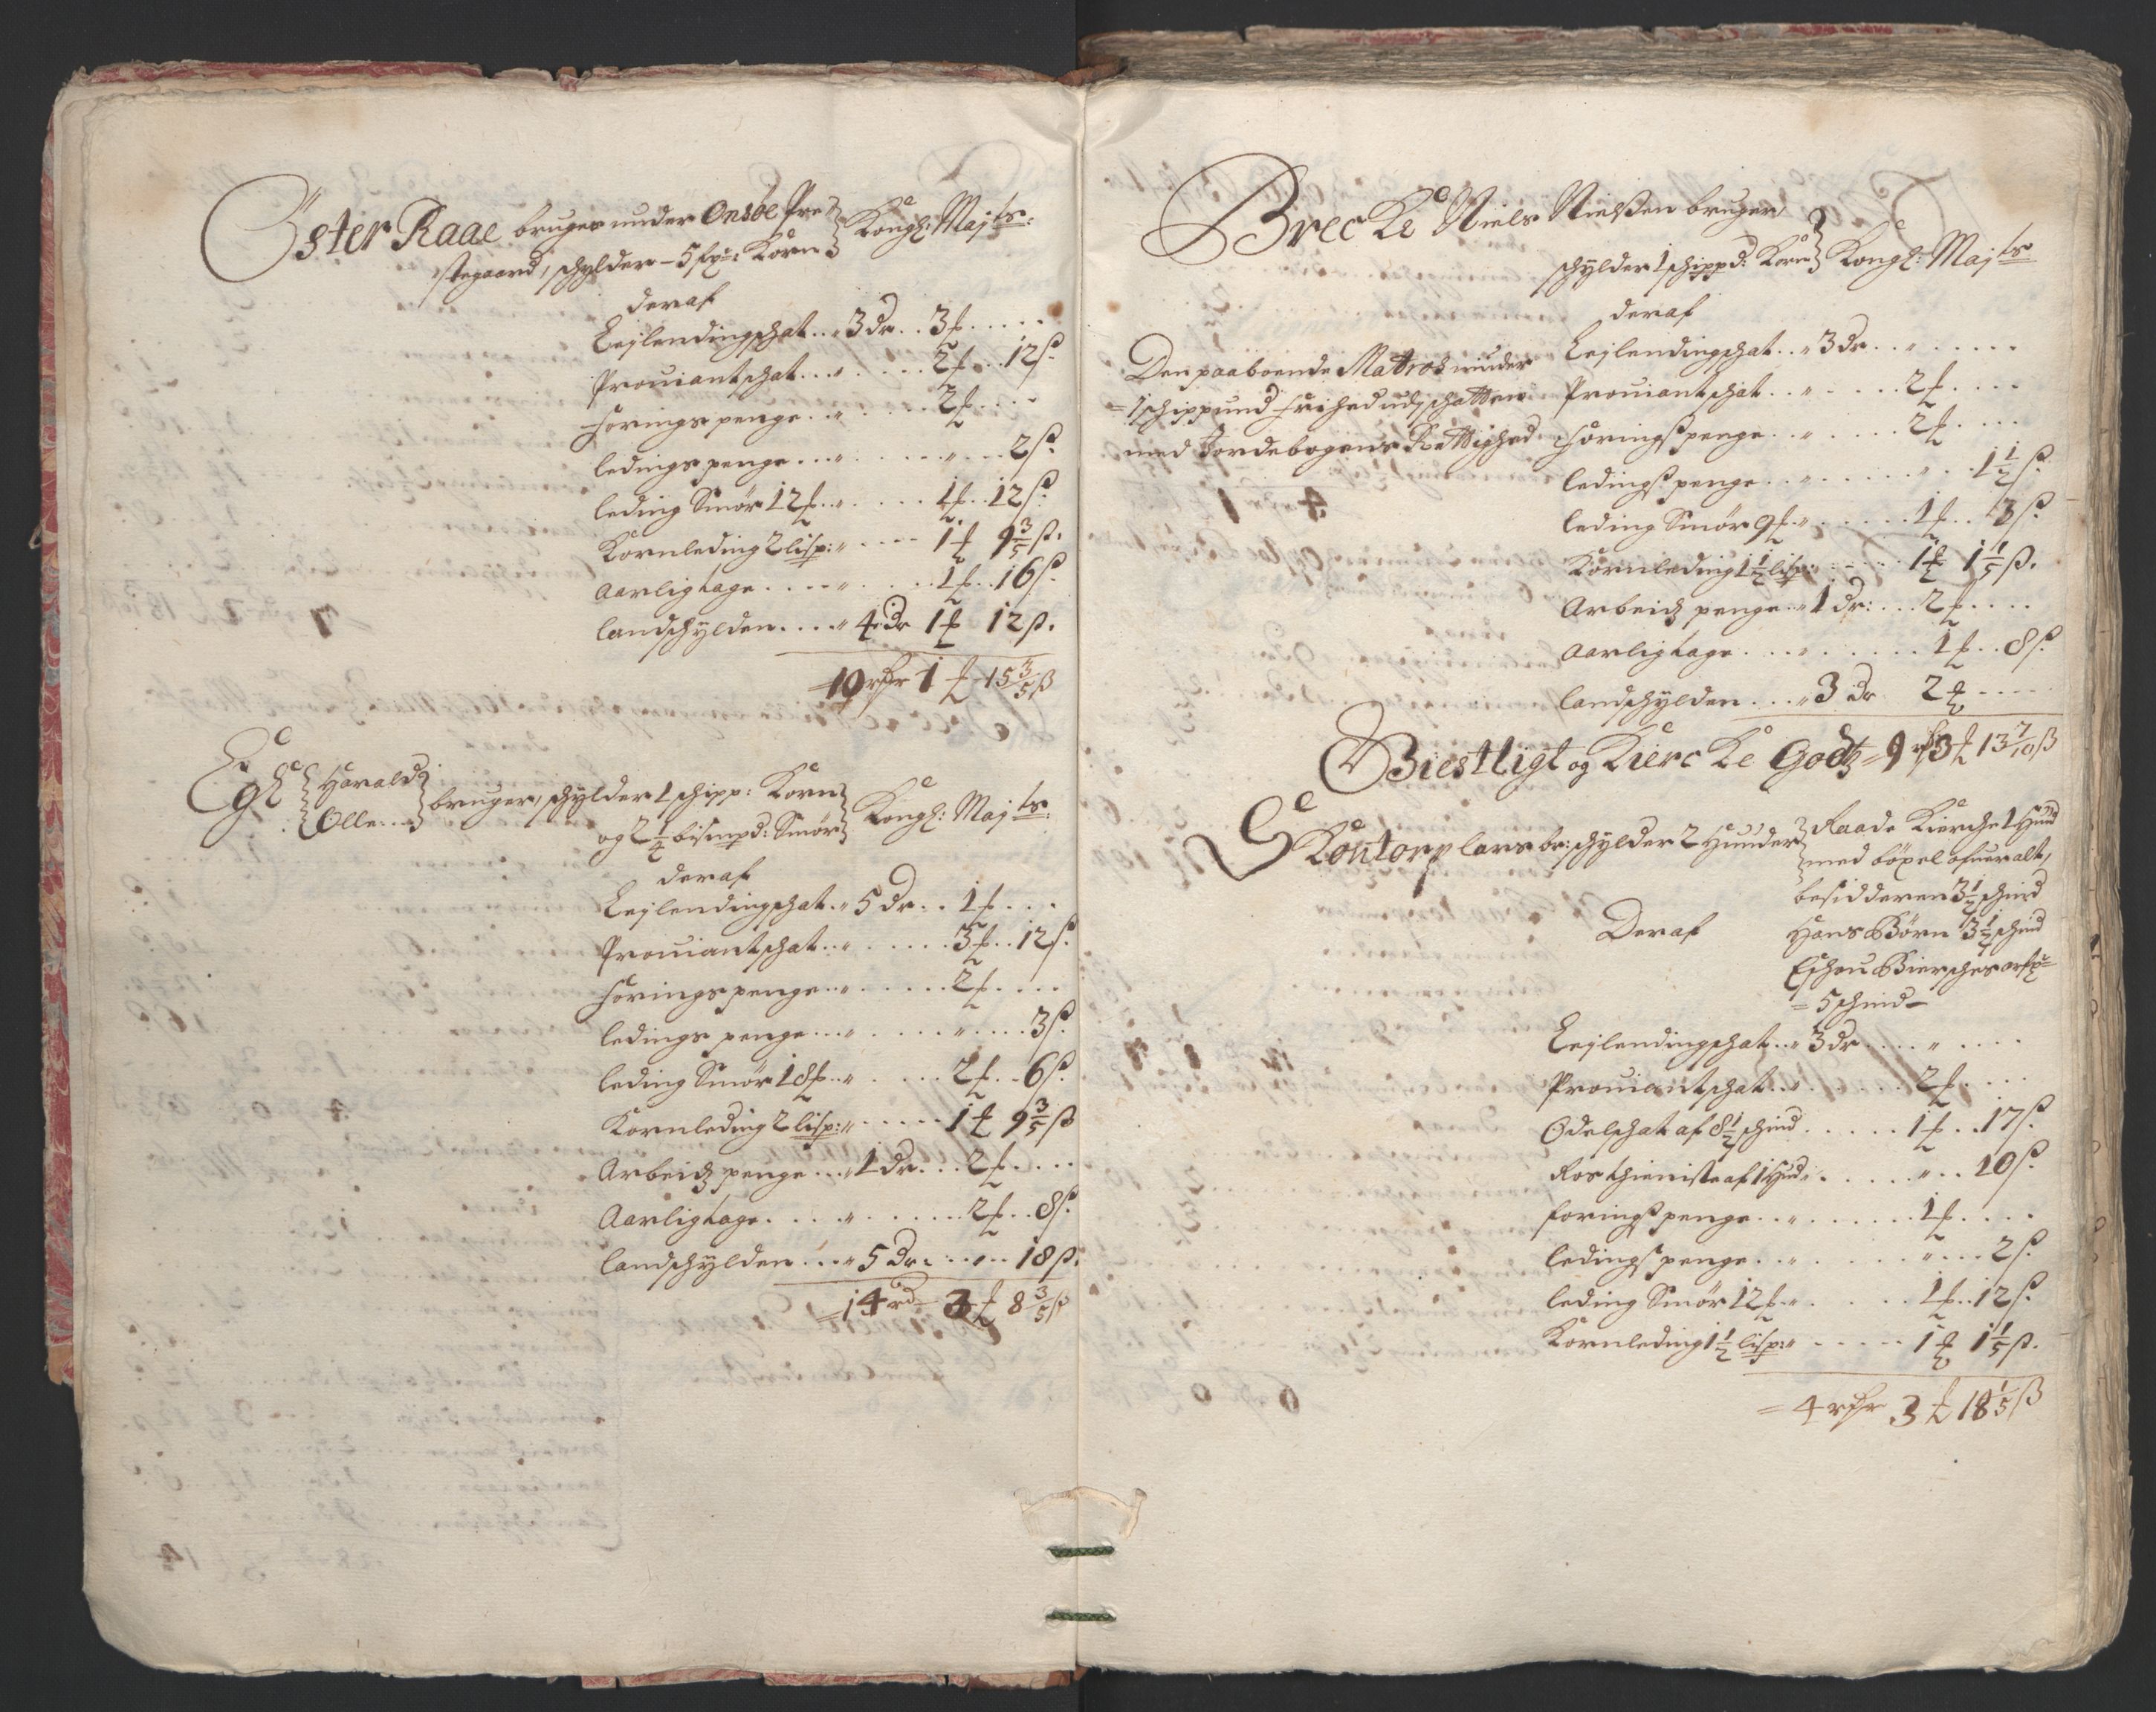 Öster Raae bruges under Onsöe Pre
stegaard, schylder - 5 spd: Korn } Kongl: Mayts:
deraf
Leylendingschat... 3 dr.. 3 f....
Prouiantschat... " .... 2 f.. 12 ß.
Foringspenge... " .... 2 f....
ledingspenge... " .... " ... 2 ß.
leding Smör 12 f.. " .... 1 f.. 12 ß.
Kornleding 2 lisp: " .... 1 f 9 3/5 ß.
Aarligtage.... " .... 1 f.. 16 ß.
landschylden.... " 4 dr 1 f 12 ß.
= 10 rdr 1 f 15 3/5 ß
Ege { Harald
Olle... } bruger, schylder 1 schipp: Korn
og 2 1/4 bismpd: Smör } Kongl: Mayts:
deraf
Leylendingschat.. " 5 dr.. 1 f...
Prouiantschat.. " .... 3 f.. 12 ß.
Foringspenge.. " .... 2 f....
ledingspenge... " .... " .... 3 ß.
leding Smör 18 f.. " .... 2 f.. 6 ß.
Kornleding 2 lisp: " .... 1 f 9 3/5 ß
Arbeidzpenge... " 1 dr... 2 f....
Aarligtage.... " .... 2 f.. 8 ß.
landschylden... " 5 dr: .. " .. 18 ß.
= 14 rd 3 f 8 3/5 ß
Brecke Niels Nielßen bruger,
schylder 1 schippd: Korn } Kongl: Mayts
deraf
Den paaboende Matros niuder
= 1 schippund frihed udj schatten
med Jordebogens Rettighed
Leylendingschat.. " 3 dr.. " ....
Prouiantschat.. " .... 2 f....
Foringßpenge.. " .... 2 f....
ledingßpenge.. " .... " .. 1 1/2 ß.
leding Smör 9 f. " .... 1 f.. 3 ß.
Kornleding 1 1/2 lisp: " .... 1 f 1 1/5 ß.
Arbeidzpenge.. " 1 dr: ... 2 f....
Aarligtage.... " .... 1 f.. 8 ß.
landschylden... " 3 dr 2 f....
= 9 rdr 3 f 13 7/10 ß
Giestligt og Kiercke Godtz
Kontorp lars br: schylder 2 Hunder } Raade Kierche 1 Hund
med böxel ofueralt,
besidderen 3 1/2 schind
Deraf
Hans Börn 3 1/2 schind
= 5 schind -
Leylendingschat.. " 3 dr.... " ....
Prouiantschat.. " .... 2 f....
Odelschat af 8 1/2 schind .... 1 f.. 17 ß.
Rosthieniste af 1 Hud " .... " .. 10 ß.
foringßpenge.. " .... 1 f....
ledingßpenge.. " .... " ... 2 ß.
leding Smör 12 f. " .... 1 f.. 12 ß.
Kornleding 1 1/2 lisp: " .... 1 f 1 1/5 ß.
= 4 rdr 3 f 18 1/5 ß